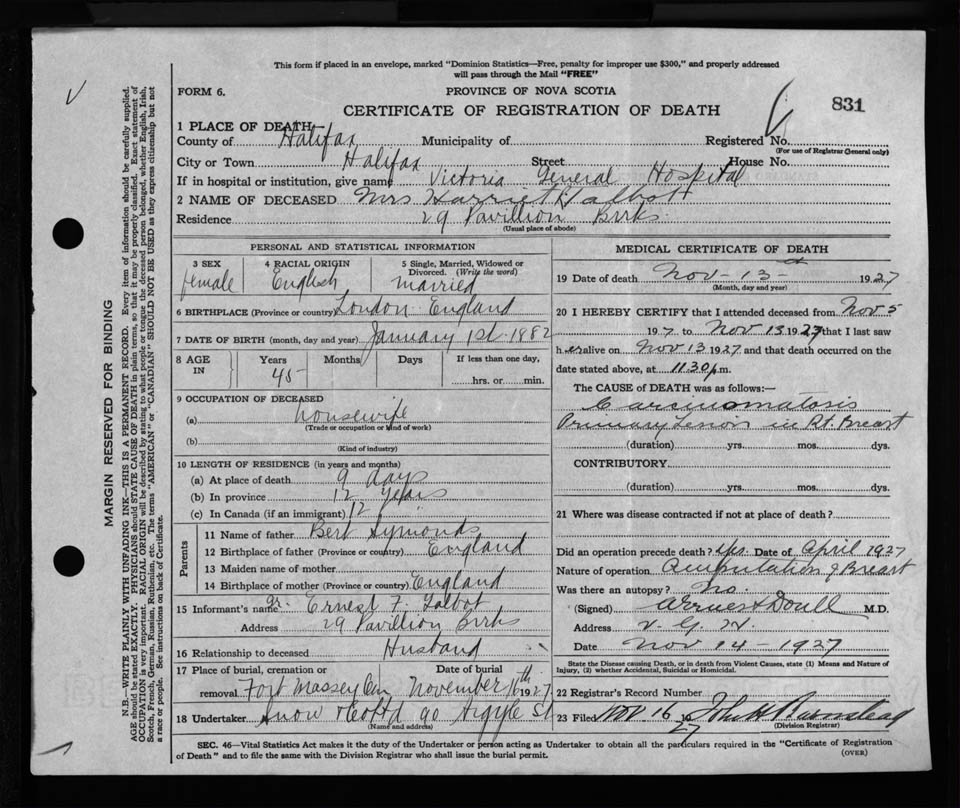 This form if placed in an envelope, marked "Dominion Statistics—Free, penalty for improper use $300," and properly addressed
will pass through the Mail "FREE"
FORM 6.
PROVINCE OF NOVA SCOTIA
CERTIFICATE OF REGISTRATION OF DEATH
831
1 PLACE OF DEATH
County of Halifax Municipality of Registered No.
(For use of Registrar General only)
City or Town Halifax Street House No.
If in hospital or institution, give name Victoria General Hospital
2 NAME OF DECEASED Mrs Harriet Talbott
Residence 29 Pavillion Brks.
(Usual place of abode)
PERSONAL AND STATISTICAL INFORMATION
3 SEX female
4 RACIAL ORIGIN English
5 Single, Married, Widowed or Divorced. (Write the word) married
6 BIRTHPLACE (Province or country) London England
7 DATE OF BIRTH (month, day and year) January 1st 1882
8 AGE IN Years 45 Months Days If less than one day, hrs. or min.
9 OCCUPATION OF DECEASED
(a) housewife
(Trade or occupation or kind of work)
(b)
(Kind of industry)
10 LENGTH OF RESIDENCE (in years and months)
(a) At place of death 9 days
(b) In province 12 years
(c) In Canada (if an immigrant) 12 "
Parents
11 Name of father Bert Symonds
12 Birthplace of father (Province or country) England
13 Maiden name of mother
14 Birthplace of mother (Province or country) England
15 Informant's name Ernest F. Talbot
Address 29 Pavillion Brks
16 Relationship to deceased Husband
17 Place of burial, cremation or removal Fort Massey Cem Date of burial November 16th 1927
18 Undertaker Snow & Co Ltd 90 Argyle St
(Name and address)
MEDICAL CERTIFICATE OF DEATH
19 Date of death Nov - 13th - 1927
(Month, day and year)
20 I HEREBY CERTIFY that I attended deceased from Nov 5
1927 to Nov 13 1927 that I last saw
her alive on Nov 13 1927 and that death occurred on the
date stated above, at 11.30 p.m.
The CAUSE of DEATH was as follows:—
Carcinomatosis
Primary Lesion in Rt. Breast
(duration) yrs. mos. dys.
CONTRIBUTORY
(duration) yrs. mos. dys.
21 Where was disease contracted if not at place of death?
Did an operation precede death? yes. Date of April 1927
Nature of operation Amputation of Breast
Was there an autopsy? No.
(Signed) Doull M.D.
Address V. G. H.
Date Nov 14 - 1927
State the Disease causing Death, or in death from Violent Causes, state (1) Means and Nature of
Injury, (2) whether Accidental, Suicidal or Homicidal.
22 Registrar's Record Number
23 Filed Nov 16 1927 John H Barnstead
(Division Registrar)
SEC. 46—Vital Statistics Act makes it the duty of the Undertaker or person acting as Undertaker to obtain all the particulars required in the "Certificate of Registration
of Death" and to file the same with the Division Registrar who shall issue the burial permit.
(OVER)
MARGIN RESERVED FOR BINDING
N.B.—WRITE PLAINLY WITH UNFADING INK—THIS IS A PERMANENT RECORD. Every item of information should be carefully supplied.
AGE should be stated EXACTLY. PHYSICIANS should STATE CAUSE OF DEATH in plain terms, so that it may be properly classified. Exact statement of
OCCUPATION is very important. RACIAL ORIGIN will be described by stating to what people or tongue the deceased person belonged, whether English, Irish,
Scotch, French, German, Russian, Ruthenian, etc. The terms "AMERICAN" or "CANADIAN" SHOULD NOT BE USED as they express citizenship but not
a race or people. See instructions on back of Certificate.